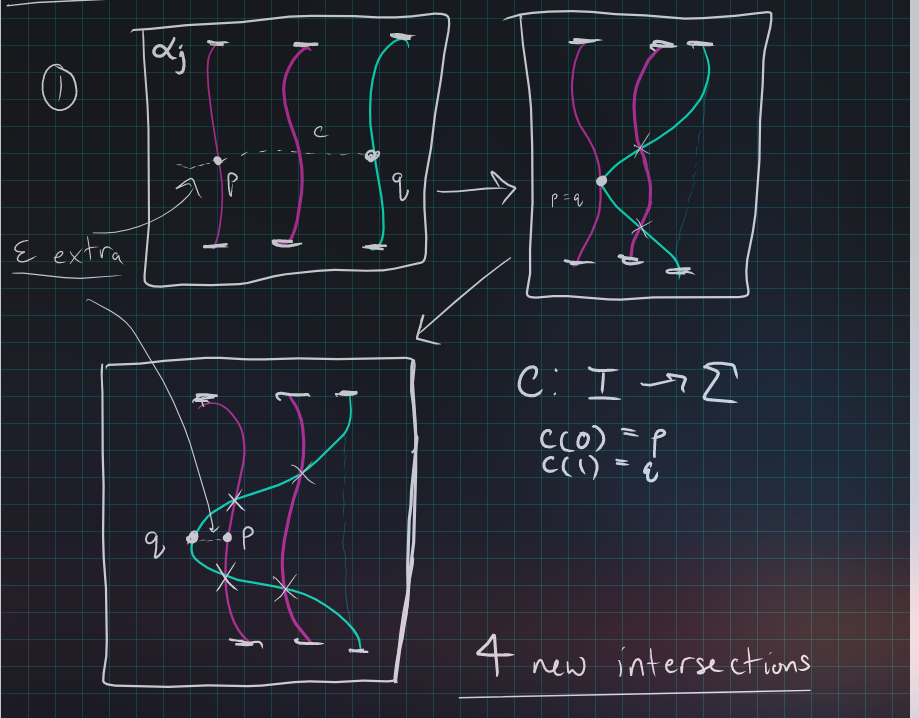 ①
αj
C
p
q
ε extra
p = q
q
p
C: I → Σ
C(0) = p
C(1) = q
4 new intersections